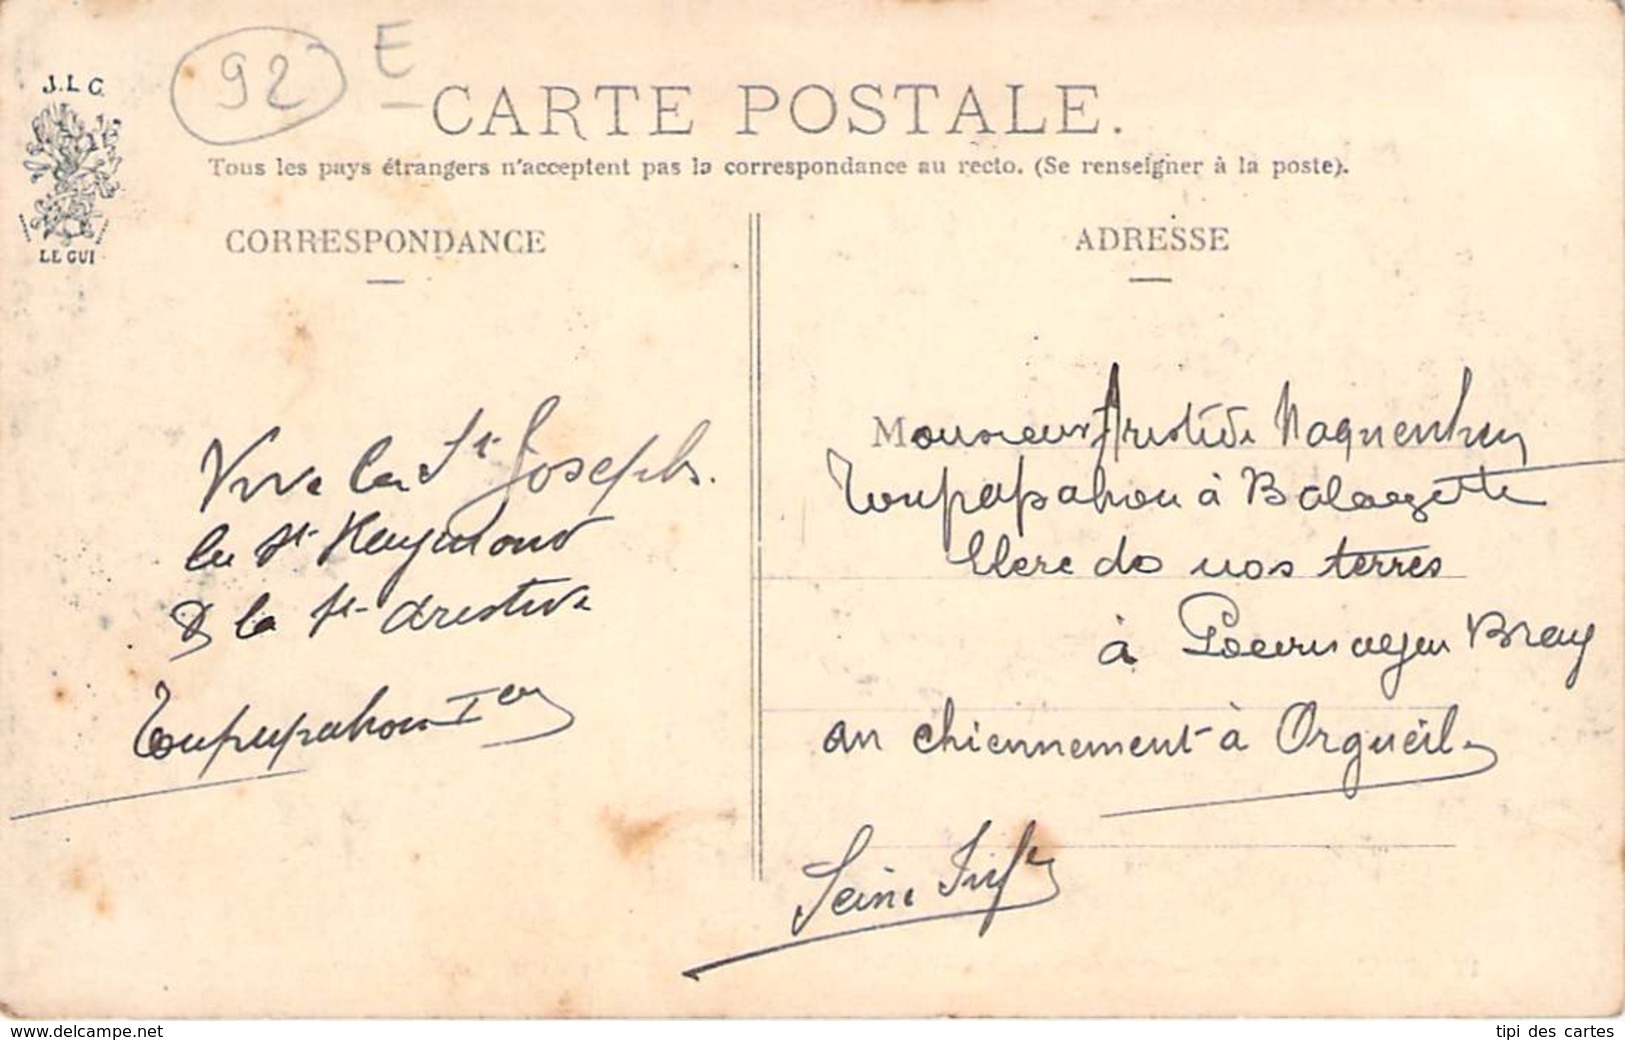 92 E
J.L.C.
LE GUI
CARTE POSTALE.
Tous les pays étrangers n'acceptent pas la correspondance au recto. (Se renseigner à la poste).
CORRESPONDANCE
ADRESSE
Vive la St Joseph.
la St Raymond
& la St Aristide
Toupapahou Ier
Monsieur Aristide
Toupapahou à
Clerc de nos terres
à Bray
an chiennement à Orgueil
Seine Infre
www.delcampe.net
tipi des cartes